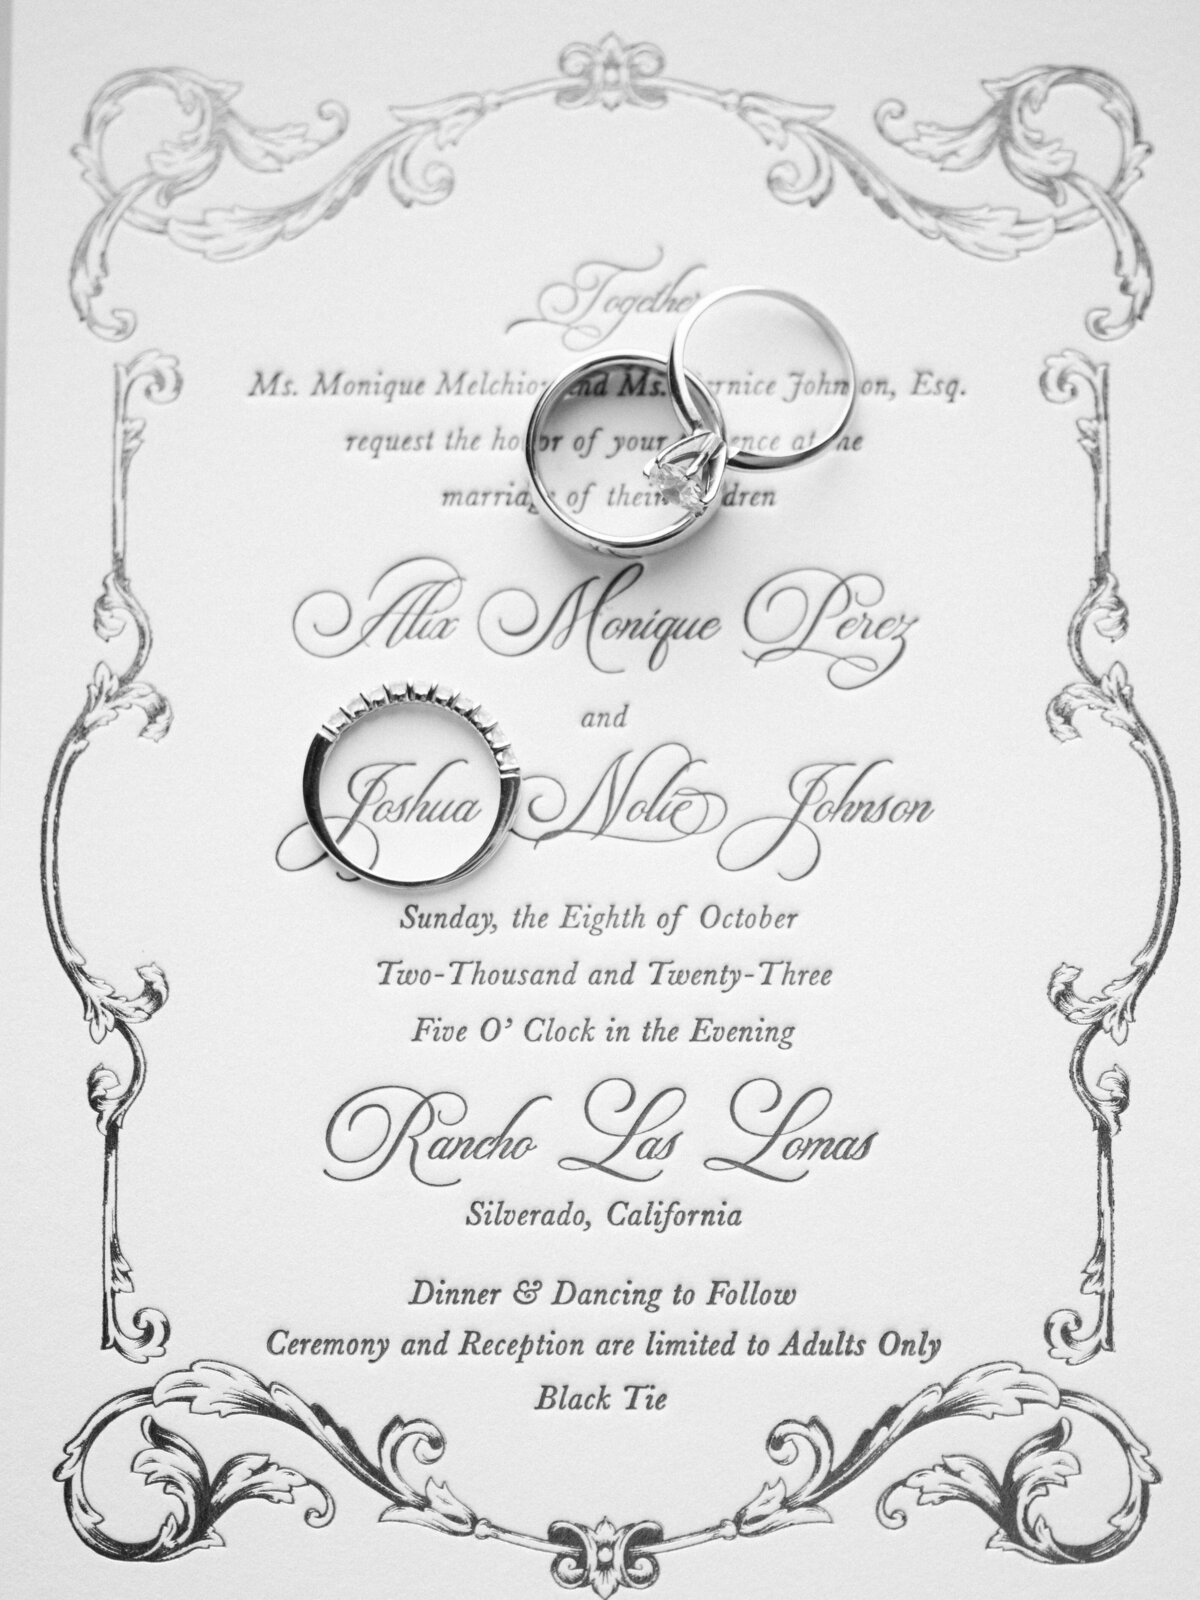 Together
Ms. Monique Melchior and Ms. Bernice Johnson, Esq.
request the honor of your presence at the
marriage of their children
Alix Monique Perez
and
Joshua Nolie Johnson
Sunday, the Eighth of October
Two-Thousand and Twenty-Three
Five O' Clock in the Evening
Rancho Las Lomas
Silverado, California
Dinner & Dancing to Follow
Ceremony and Reception are limited to Adults Only
Black Tie